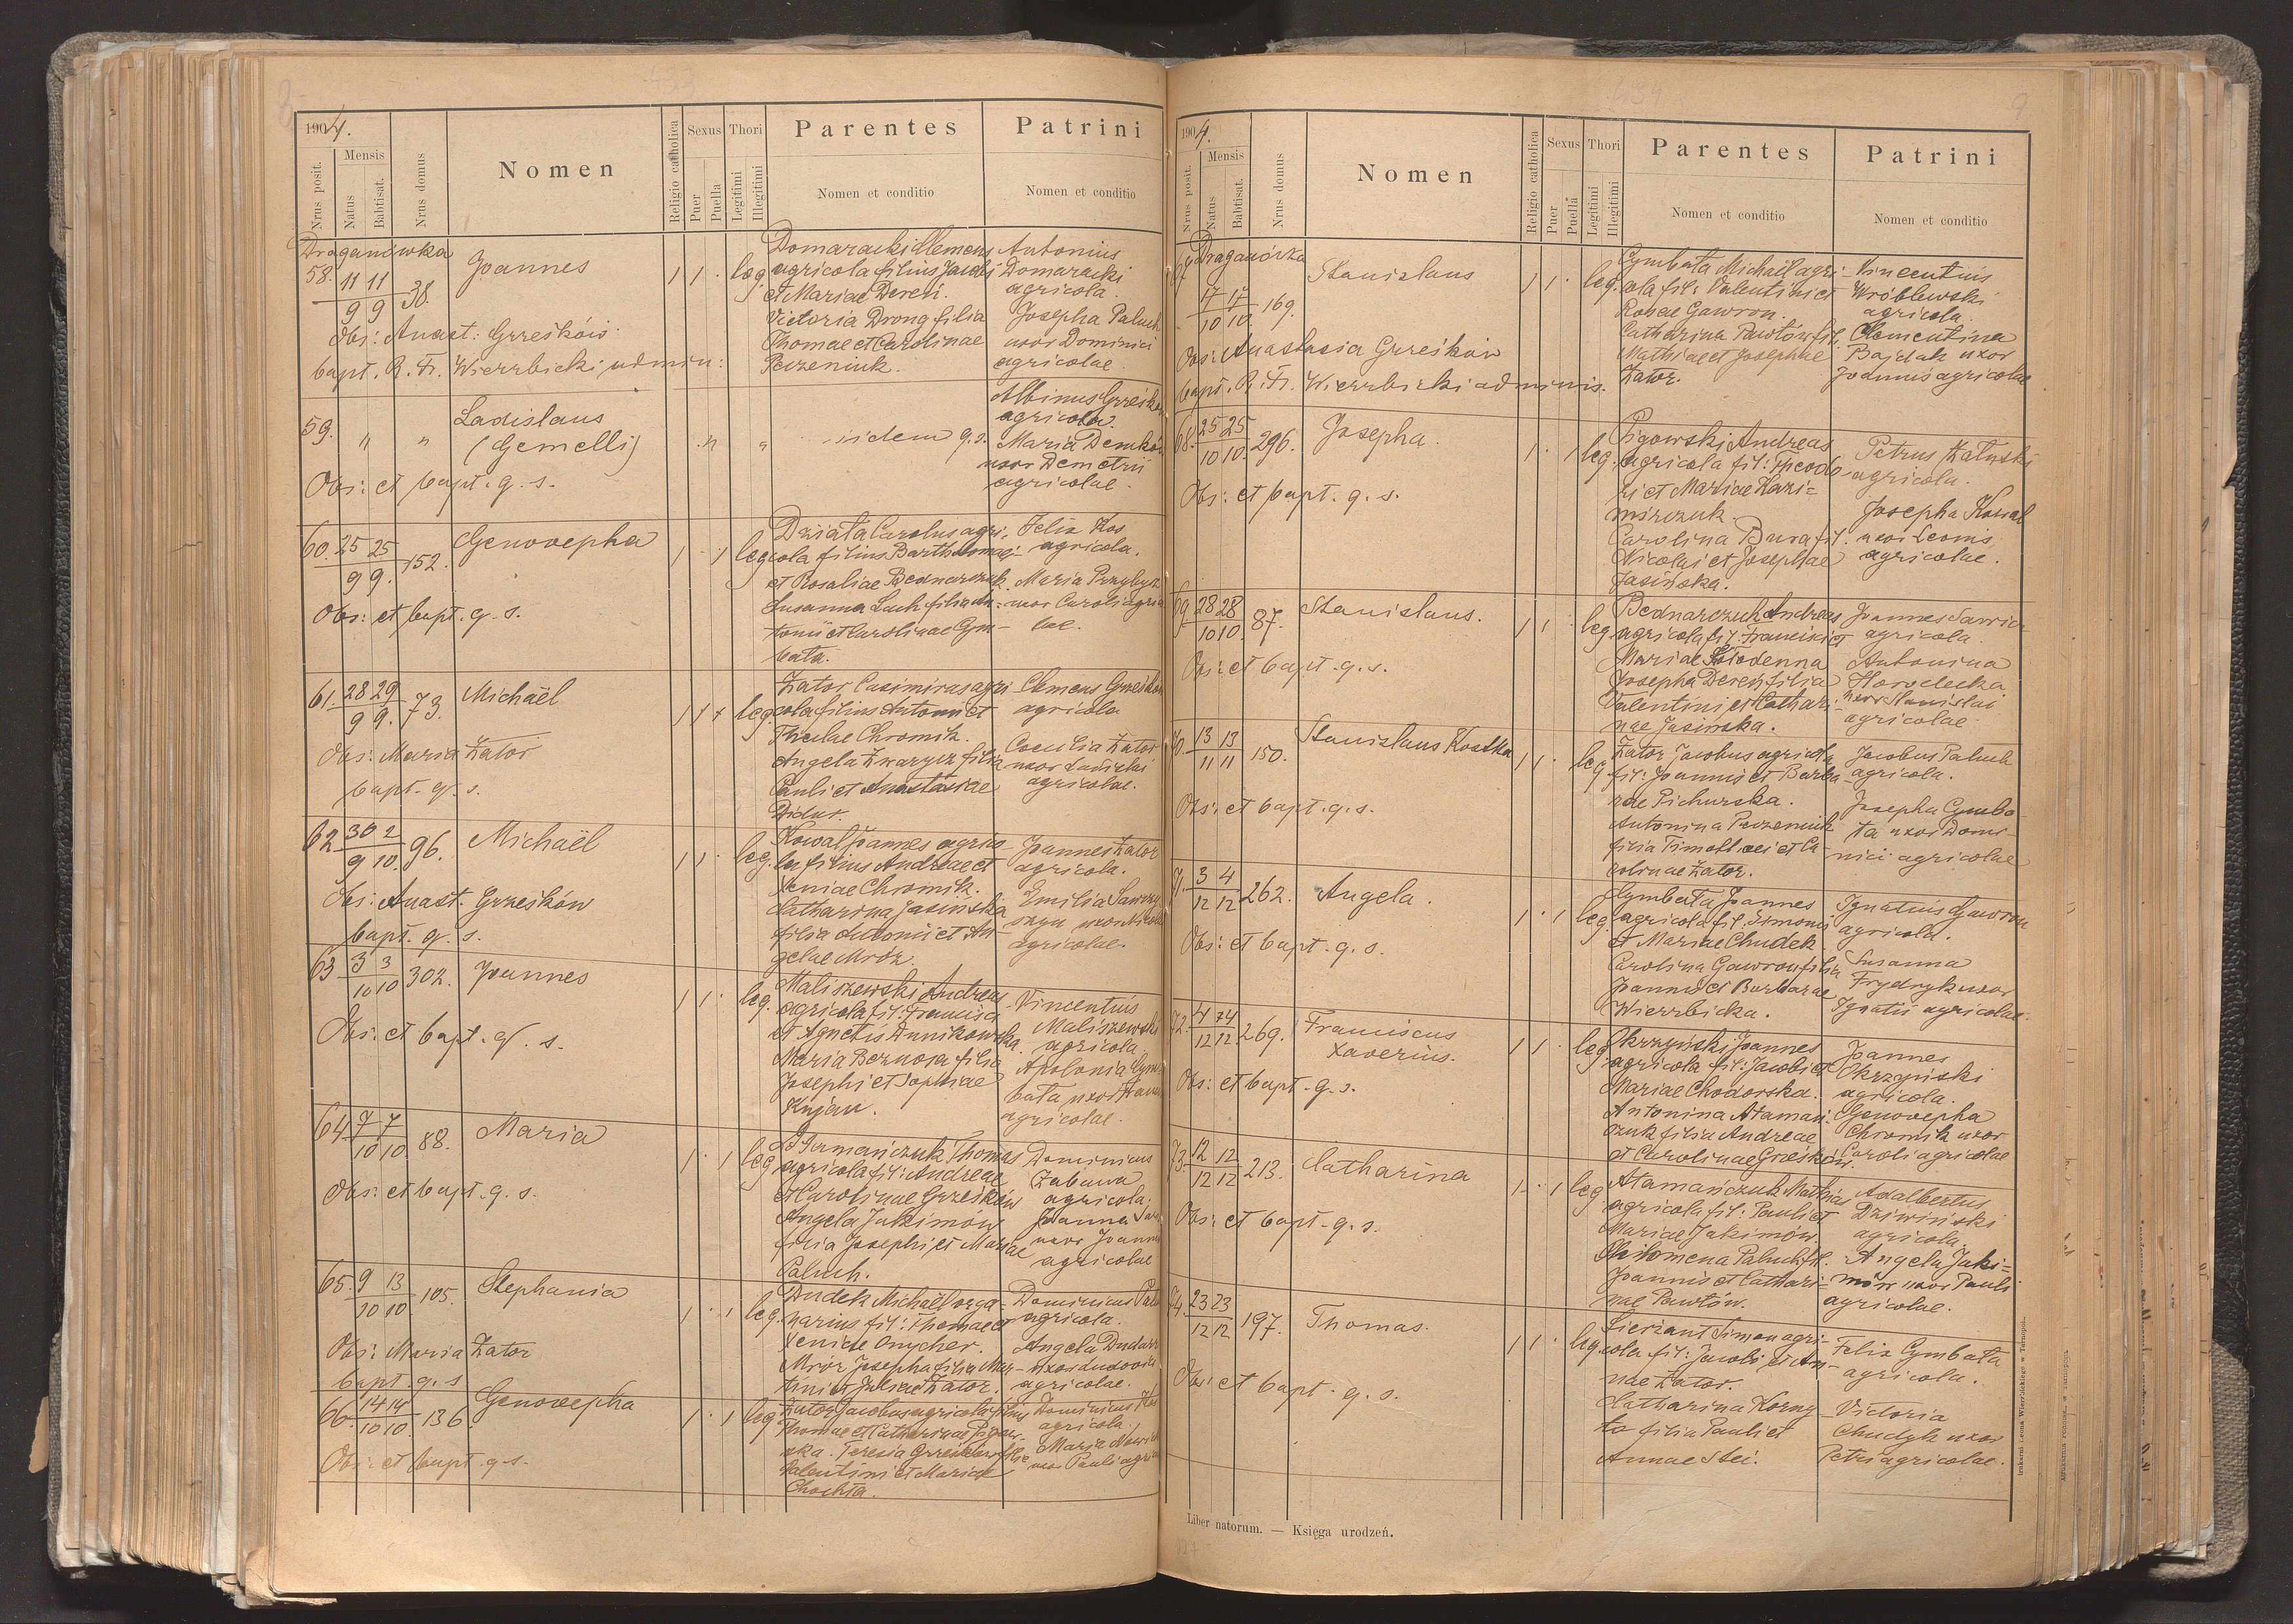 1904.
Nrus posit.
Mensis
Natus
Babtisat.
Nrus domus
Nomen
Religio catholica
Sexus
Puer
Puella
Thori
Legitimi
Illegitimi
Parentes
Nomen et conditio
Patrini
Nomen et conditio
Draganówka
58. 11 11
9 9 38.
Joannes
1 1 . leg.
Domaracki Clemens
agricola filius Jacobi
et Mariae Dereń.
Victoria Drong filia
Thomae et Carolinae
Peczeniuk.
Antonius
Domaracki
agricola.
Josepha Paluch
uxor Dominici
agricolae
Obs: Anast: Grześków
bapt. R. Fr. Wierzbicki admin:
59. " "
Ladislaus
(Gemelli)
" "
iidem q. s.
Albinus Grześków
agricola.
Maria Demków
uxor Demetrii
agricolae.
Obs: et bapt. q. s.
60. 25 25
9 9. 152.
Genovepha
1 . 1 leg.
Dziața Carolus agri-
cola filius Bartholomaei
et Rosaliae Bednarczuk.
Susanna Luch filia An-
tonii et Carolinae Cym-
bała.
Felix Kos
agricola.
Maria Przybysz
uxor Caroli agrico-
lae.
Obs: et bapt. q. s.
61. 28 29
9 9. 73.
Michaël
1 1 . leg.
Zator Casimirus agri-
cola filius Antonii et
Theclae Chromik.
Angela Zwarycz filia
Pauli et Anastasiae
Didur.
Clemens Grześków
agricola
Coecilia Zator
uxor Ladislai
agricolae.
Obs: Maria Zator
bapt. q. s.
62 30 2
9 10. 96.
Michaël
1 1 . leg.
Kowal Joannes agrico-
la filius Andreae et
Xeniae Chromik.
Catharina Jasińska
filia Antonii et An-
gelae Mróz.
Joannes Zator
agricola.
Emilia
agricolae.
Obs: Anast. Grześków
bapt. q. s.
63 3 3
10 10 302.
Joannes
1 1 . leg.
Maliszewski Andreas
agricola fil: Francisci
et Agnetis Dunikowska.
Maria Bernosa filia
Josephi et Sophiae
Kujan.
Vincentius
Maliszewski
agricola.
Apolonia Cym-
bała uxor
agricolae.
Obs: et bapt. q. s.
64 7 7
10 10 88.
Maria
1 . 1 leg
Thomas
agricola fil: Andreae
et Carolinae Grześków
Angela Jakimów
filia Josephi et Mariae
Paluch.
Dominicus
Zabawa
agricola.
Joanna
uxor Joannis
agricolae
Obs: et bapt. q. s.
65. 9 13
10 10 105.
Stephania
1 . 1 leg.
Dudek Michaël orga-
narius fil: Thomae et
Xeniae Onycher.
Mróz Josepha filia Mar-
tini et Juliae Zator.
Dominicus
agricola.
Angela
uxor Ludovici
agricolae.
Obs: Maria Zator
bapt. q. s
66. 14 14
10 10. 136.
Genovepha
1 . 1 leg
Zator Jacobus agricola filius
Thomae et Catharinae Pigow-
ska. Teresia Grześków filia
Valentini et Mariae
Chochla.
Dominicus Kos
agricola.
Maria
uxor Pauli agri
Obs: et bapt. q. s.
1904.
Nrus posit.
Mensis
Natus
Babtisat.
Nrus domus
Nomen
Religio catholica
Sexus
Puer
Puella
Thori
Legitimi
Illegitimi
Parentes
Nomen et conditio
Patrini
Nomen et conditio
Draganówka
67
17 17
10 10. 169.
Stanislaus
1 1 . leg.
Cymbała Michaël agri-
cola fil: Valentini et
Rosae Gawron.
Catharina Pawłów fil.
Mathiae et Josephae
Zator.
Vincentius
Wróblewski
agricola.
Clementina
Bajdak uxor
Joannis agricolae
Obs: Anastasia Grześków
bapt. R. Fr. Wierzbicki adminis.
68. 25 25
10 10. 296.
Josepha.
1 . 1 leg.
Pigowski Andreas
agricola fil: Theodo-
ri et Mariae Kazi=
mirczuk
Carolina Bura fil.
Nicolai et Josephae
Jasińska.
Petrus Załuski
agricola.
Josepha Kowal
uxor Leonis
agricolae.
Obs: et bapt. q. s.
69. 28 28
10 10. 87.
Stanislaus.
1 1 . leg.
Bednarczuk Andreas
agricola fil: Francisci et
Mariae Słodenna
Josepha Dereń filia
Valentini et Cathari-
nae Jasińska.
Joannes
agricola.
Antonina
Horodecka
uxor Stanislai
agricolae.
Obs: et bapt. q. s.
70. 13 13
11 11 150.
Stanislaus Kostka
1 1 . leg
Zator Jacobus agricola
fil: Joannis et Barba-
rae Pichurska.
Antonina Peczeniuk
filia Timothei et Ca-
rolinae Zator.
Jacobus Paluch
agricola.
Josepha Cymba-
ła uxor Domi-
nici agricolae
Obs: et bapt. q. s.
71. 3 4
12 12 262.
Angela.
1 . 1 leg.
Cymbała Joannes
agricola fil: Simonis
et Mariae Chudek.
Carolina Gawron filia
Joannis et Barbarae
Wierzbicka.
Ignatius Gawron
agricola.
Susanna
Frydryk uxor
Ignatii agricolae.
Obs: et bapt. q. s.
72. 4 4
12 12. 269.
Franciscus
Xaverius.
1 1 . leg.
Okrzyński Joannes
agricola fil: Jacobi et
Mariae Chodorska.
Antonina Ataman-
czuk filia Andreae
et Carolinae Grześków.
Joannes
Okrzyński
agricola.
Genovepha
Chromik uxor
Caroli agricolae
Obs: et bapt. q. s.
73. 12 12
12 12 213.
Catharina
1 . 1 leg.
Atamańczuk Mathias
agricola fil: Pauli et
Mariae Jakimów.
Philomena Paluch fil.
Joannis et Cathari-
nae Pawłów.
Adalbertus
Dziwiński
agricola.
Angela Jaki=
mów uxor Pauli
agricolae.
Obs: et bapt. q. s.
74. 23 23
12 12 197.
Thomas.
1 1 . leg.
Sierżant Simon agri-
cola fil: Jacobi et An-
nae Zator.
Catharina Korny-
ta filia Pauli et
Annae Stei.
Felix Cymbała
agricola.
Victoria
Chudyk uxor
Petri agricolae.
Obs: et bapt. q. s.
Liber natorum. — Księga urodzeń.